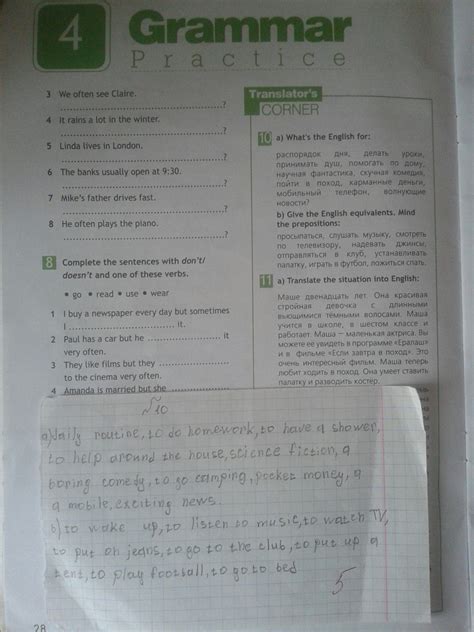 4 Grammar
Practice
3 We often see Claire.
?
4 It rains a lot in the winter.
?
5 Linda lives in London.
?
6 The banks usually open at 9:30.
?
7 Mike's father drives fast.
?
8 He often plays the piano.
?
8 Complete the sentences with don't/
doesn't and one of these verbs.
• go • read • use • wear
1 I buy a newspaper every day but sometimes
I .................... it.
2 Paul has a car but he .................... it
very often.
3 They like films but they ....................
to the cinema very often.
4 Amanda is married but she ....................
Translator's
CORNER
10 a) What's the English for:
распорядок дня, делать уроки,
принимать душ, помогать по дому,
научная фантастика, скучная комедия,
пойти в поход, карманные деньги,
мобильный телефон, волнующие
новости?
b) Give the English equivalents. Mind
the prepositions:
просыпаться, слушать музыку, смотреть
по телевизору, надевать джинсы,
отправляться в клуб, устанавливать
палатку, играть в футбол, ложиться спать.
11 a) Translate the situation into English:
Маше двенадцать лет. Она красивая
стройная девочка с длинными
вьющимися тёмными волосами. Маша
учится в школе, в шестом классе и
работает. Маша – маленькая актриса. Вы
можете её увидеть в программе «Ералаш»
и в фильме «Если завтра в поход». Это
очень интересный фильм. Маша теперь
любит ходить в поход. Она умеет ставить
палатку и разводить костёр.
№10
a) daily routine, to do homework, to have a shower,
to help around the house, science fiction, a
boring comedy, to go camping, pocket money, a
a mobile, exciting news.
b) to wake up, to listen to music, to watch TV,
to put on jeans, to go to the club, to put up a
tent, to play football, to go to bed
5
28